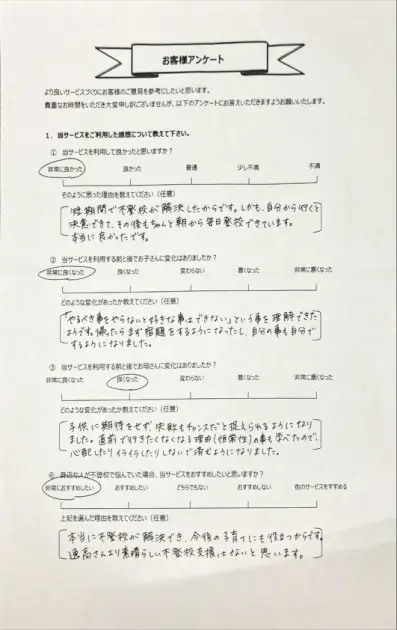 お客様アンケート
より良いサービスづくりにお客様のご意見を参考にしたいと思います。
貴重なお時間をいただき大変申し訳ございませんが、以下のアンケートにお答えいただきますようお願いいたします。
1．当サービスをご利用した感想について教えて下さい。
① 当サービスを利用して良かったと思いますか？
非常に良かった 良かった 普通 少し不満 不満
そのように思った理由を教えてください（任意）
短期間で不登校が解決したからです。しかも、自分から行くと
決意できて、その後もちゃんと朝から毎日登校できています。
本当に良かったです。
② 当サービスを利用する前と後でお子さんに変化はありましたか？
非常に良くなった 良くなった 変わらない 悪くなった 非常に悪くなった
どのような変化があったか教えてください（任意）
"やるべき事をやらないと好きな事はできない"という事を理解できた
ようです。帰ったらまず宿題をするようになったし、自分の事も自分で
するようになりました。
③ 当サービスを利用する前と後でお母さんに変化はありましたか？
非常に良くなった 良くなった 変わらない 悪くなった 非常に悪くなった
どのような変化があったか教えてください（任意）
子供に期待をせず、失敗もチャンスだと捉えられるようになり
ました。直前で行きたくなくなる理由(恒常性)の事も学べたので、
心配したりイライラしたりしないで済むようになりました。
④ 身近な人が不登校で悩んでいた場合、当サービスをおすすめしたいと思いますか？
非常におすすめしたい おすすめしたい どちらでもない おすすめしない 他のサービスをすすめる
上記を選んだ理由を教えてください（任意）
本当に不登校が解決でき、今後の子育てにも役立つからです。
逸高さんより素晴らしい不登校支援はないと思います。